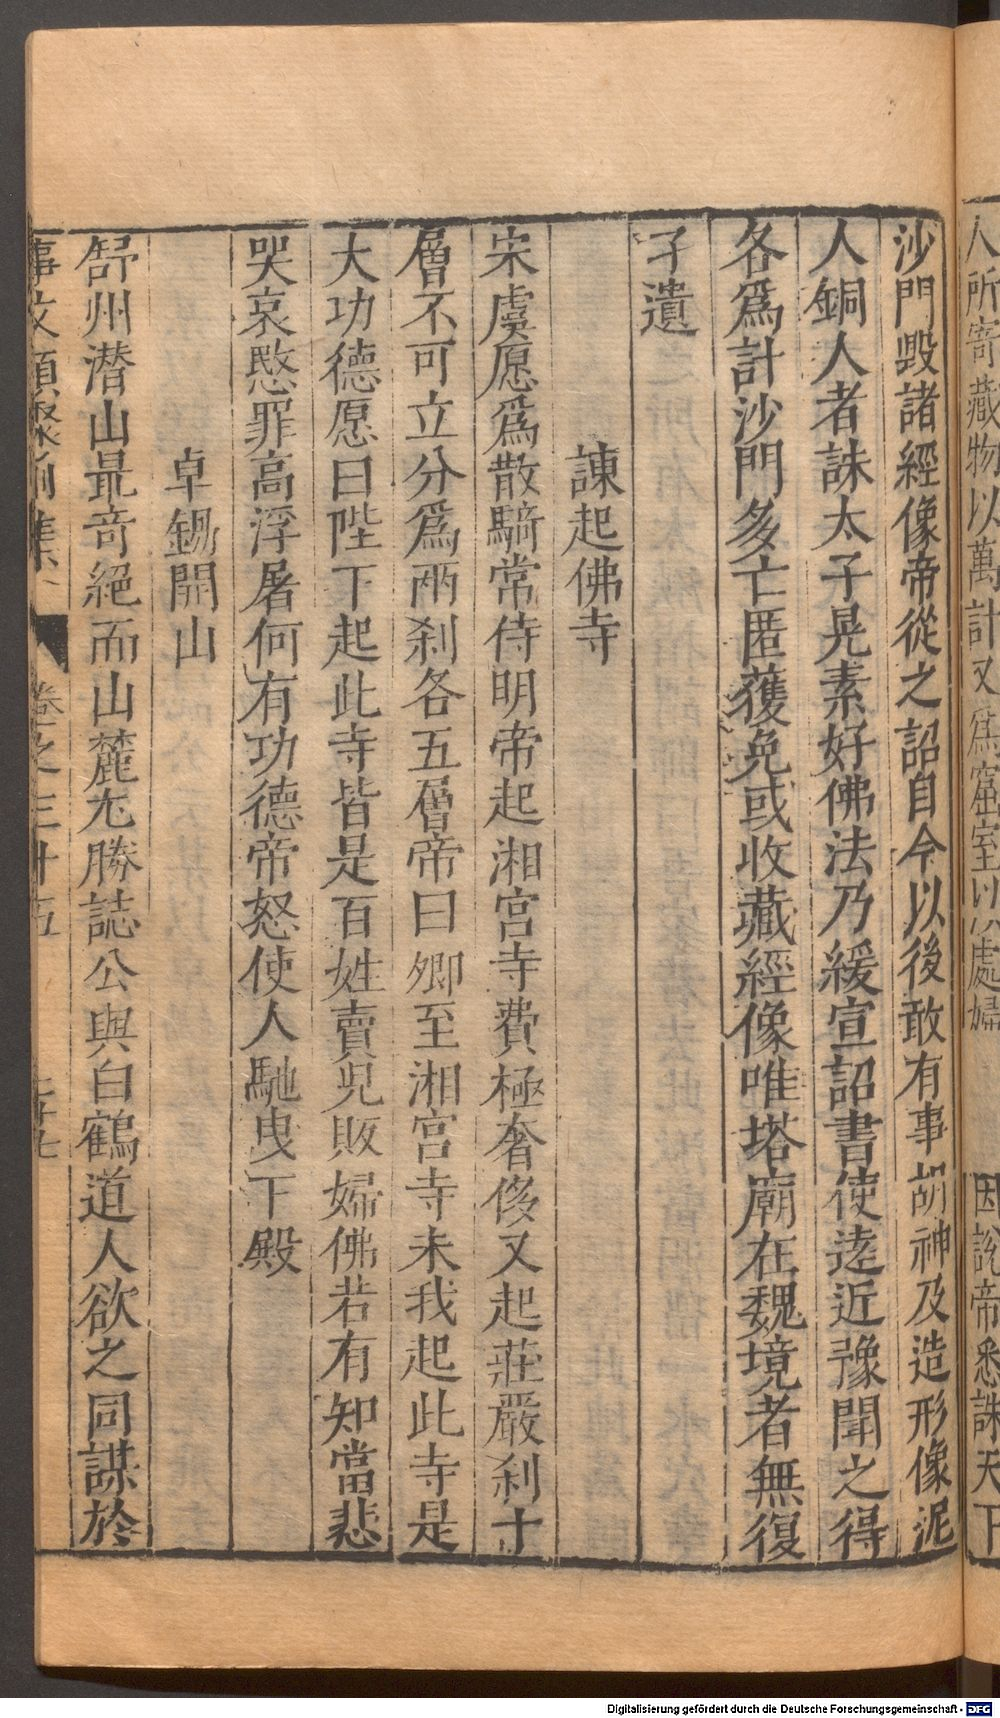 人所寄藏物以萬計又爲窟室以處婦
因說帝悉誅天下
沙門毀諸經像帝從之詔自今以後敢有事胡神及造形像泥
人銅人者誅太子晃素好佛法乃緩宣詔書使逺近豫聞之得
各爲計沙門多亡匿獲免或收藏經像唯塔廟在魏境者無復
孑遺
諫起佛寺
宋虞愿爲散騎常侍明帝起湘宮寺費極奢侈又起莊嚴刹十
層不可立分爲兩刹各五層帝曰卿至湘宮寺未我起此寺是
大功德愿曰陛下起此寺皆是百姓賣兒販婦佛若有知當悲
哭哀愍罪高浮屠何有功德帝怒使人馳曳下殿
卓錫開山
舒州潛山最竒絕而山麓尤勝誌公與白鶴道人欲之同謀於
事文類聚前集
卷之三十五
Digitalisierung gefördert durch die Deutsche Forschungsgemeinschaft - DFG